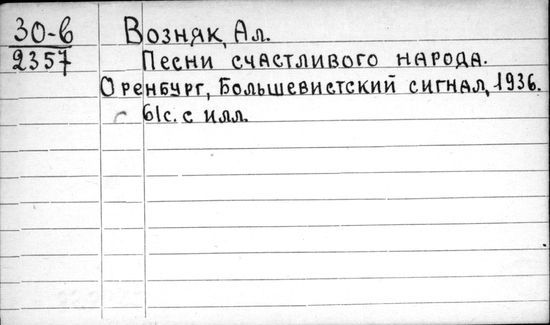 30-в Возняк, Ал.
2357 Песни счастливого народа.
Оренбург, Большевистский сигнал, 1936.
61с. с илл.